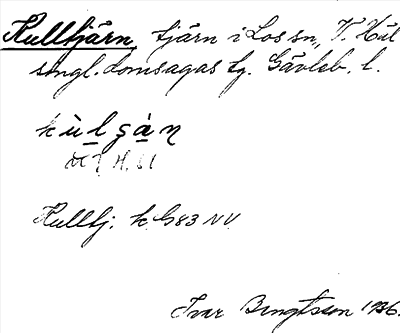 Kulltjärn, tjärn i Los sn, V. Häl
singl. domsagas tg. Gävleb. l.
kùlşàn
Kulltj: k G83 NV
Ivar Bengtsson 1936.